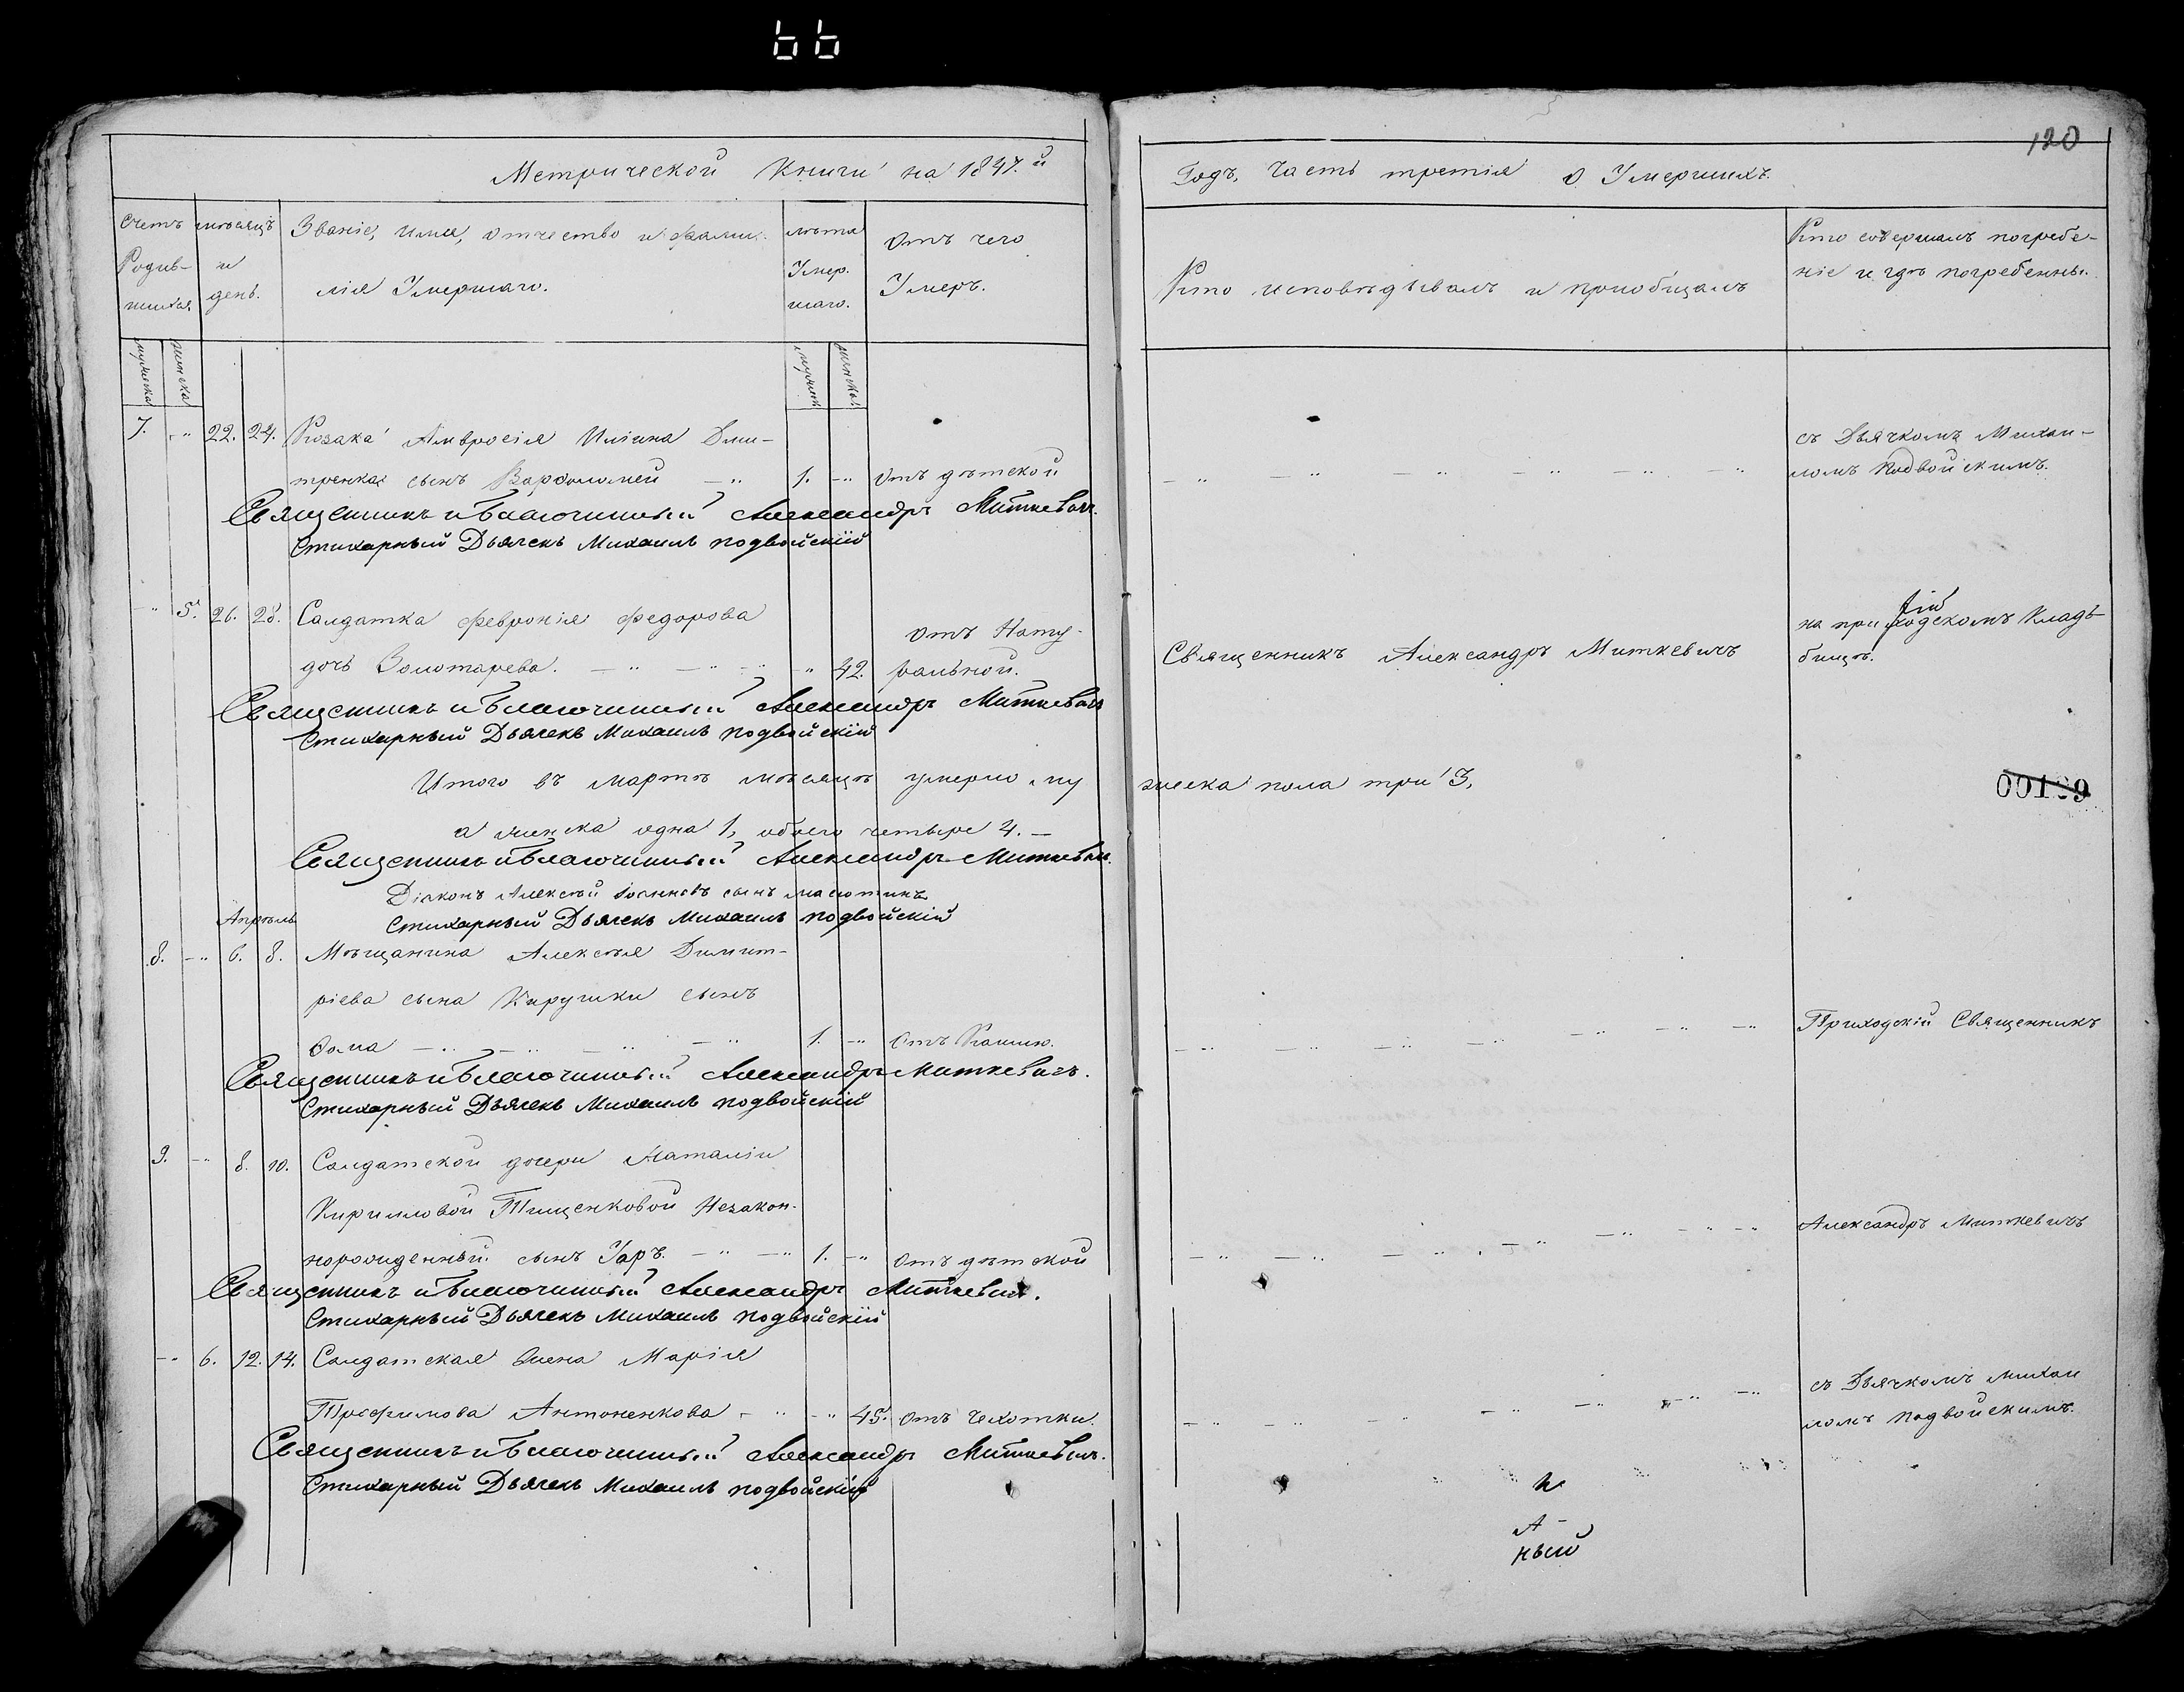 66
120
Метрической Книги на 1847.й
Годъ, Часть третія о Умершихъ.
Счетъ Родив-шихся
мѣсяцъ и день.
Званіе, имя, отчество и фами-
лія Умершаго.
лѣта Умер-шаго.
Отъ чего
Умеръ.
Кто исповѣдывалъ и пріобщалъ
Кто совершалъ погребе-
ніе и гдѣ погребенны.
мужеска
женска
мужеск
женскъ
7. -" 22. 24. Козака Амвросія Иліина Дми-
тренка сынъ Варфоломей — " 1. -" Отъ дѣтской
съ Дьячкомъ Михаи-
ломъ Подвойскимъ.
Священникъ и Благочинный Александръ Миткевичъ.
Стихарный Дьячекъ Михаилъ Подвойскій
-" 5. 26. 28. Салдатка Февронія Федорова
дочь Золотарева. — " — " -" 42. Отъ Нату-
ральной.
Священникъ Александръ Миткевичъ
на приходскомъ Клад-
бищѣ.
Священникъ и Благочинный Александръ Миткевичъ
Стихарный Дьячекъ Михаилъ Подвойскій
Итого въ мартѣ мѣсяцѣ умерло му
жеска пола три 3,
00199
а женска одна 1, обоего четыре 4. —
Священникъ и Благочинный Александръ Миткевичъ.
Діаконъ Алексѣй Іоанновъ сынъ
Стихарный Дьячекъ Михаилъ Подвойскій
Апрѣль
8. -" 6. 8. Мѣщанина Алексѣя Димит-
ріева сына Кирушки сынъ
Ѳома — " — " — " — " 1. -" Отъ Кашлю.
Приходскій Священникъ
Священникъ и Благочинный Александръ Миткевичъ.
Стихарный Дьячекъ Михаилъ Подвойскій
9. -" 8. 10. Салдатской дочери Наталіи
Кирилловой Тищенковой Незакон-
норожденный сынъ — " — " 1. -" Отъ дѣтской
Александръ Миткевичъ
Священникъ и Благочинный Александръ Миткевичъ.
Стихарный Дьячекъ Михаилъ Подвойскій
-" 6. 12. 14. Салдатская Жена Марія
Трофимова Антоненкова - " -" 45. Отъ Чехотки.
съ Дьячкомъ Михаи
ломъ Подвойскимъ.
Священникъ и Благочинный Александръ Миткевичъ.
Стихарный Дьячекъ Михаилъ Подвойскій
А-
ный